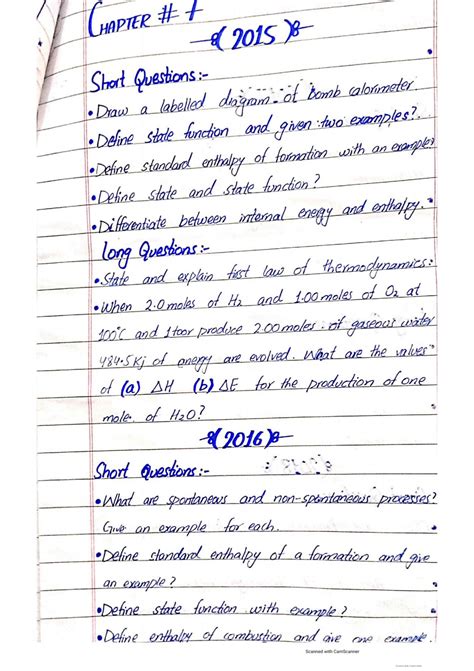 CHAPTER # 7
(2015)
Short Questions:-
• Draw a labelled diagram of bomb calorimeter
• Define state function and given two examples?
• Define standard enthalpy of formation with an example?
• Define state and state function?
• Differentiate between internal energy and enthalpy.
Long Questions:-
• State and explain first law of thermodynamics:
• When 2.0 moles of H2 and 1.00 moles of O2 at
100°C and 1 torr produce 2.00 moles of gaseous water
484.5 Kj of energy are evolved. What are the values
of (a) ΔH (b) ΔE for the production of one
mole of H2O?
(2016)
Short Questions:-
• What are spontaneous and non-spontaneous processes?
Give an example for each.
• Define standard enthalpy of a formation and give
an example?
• Define state function with example?
• Define enthalpy of combustion and give one example.
Scanned with CamScanner